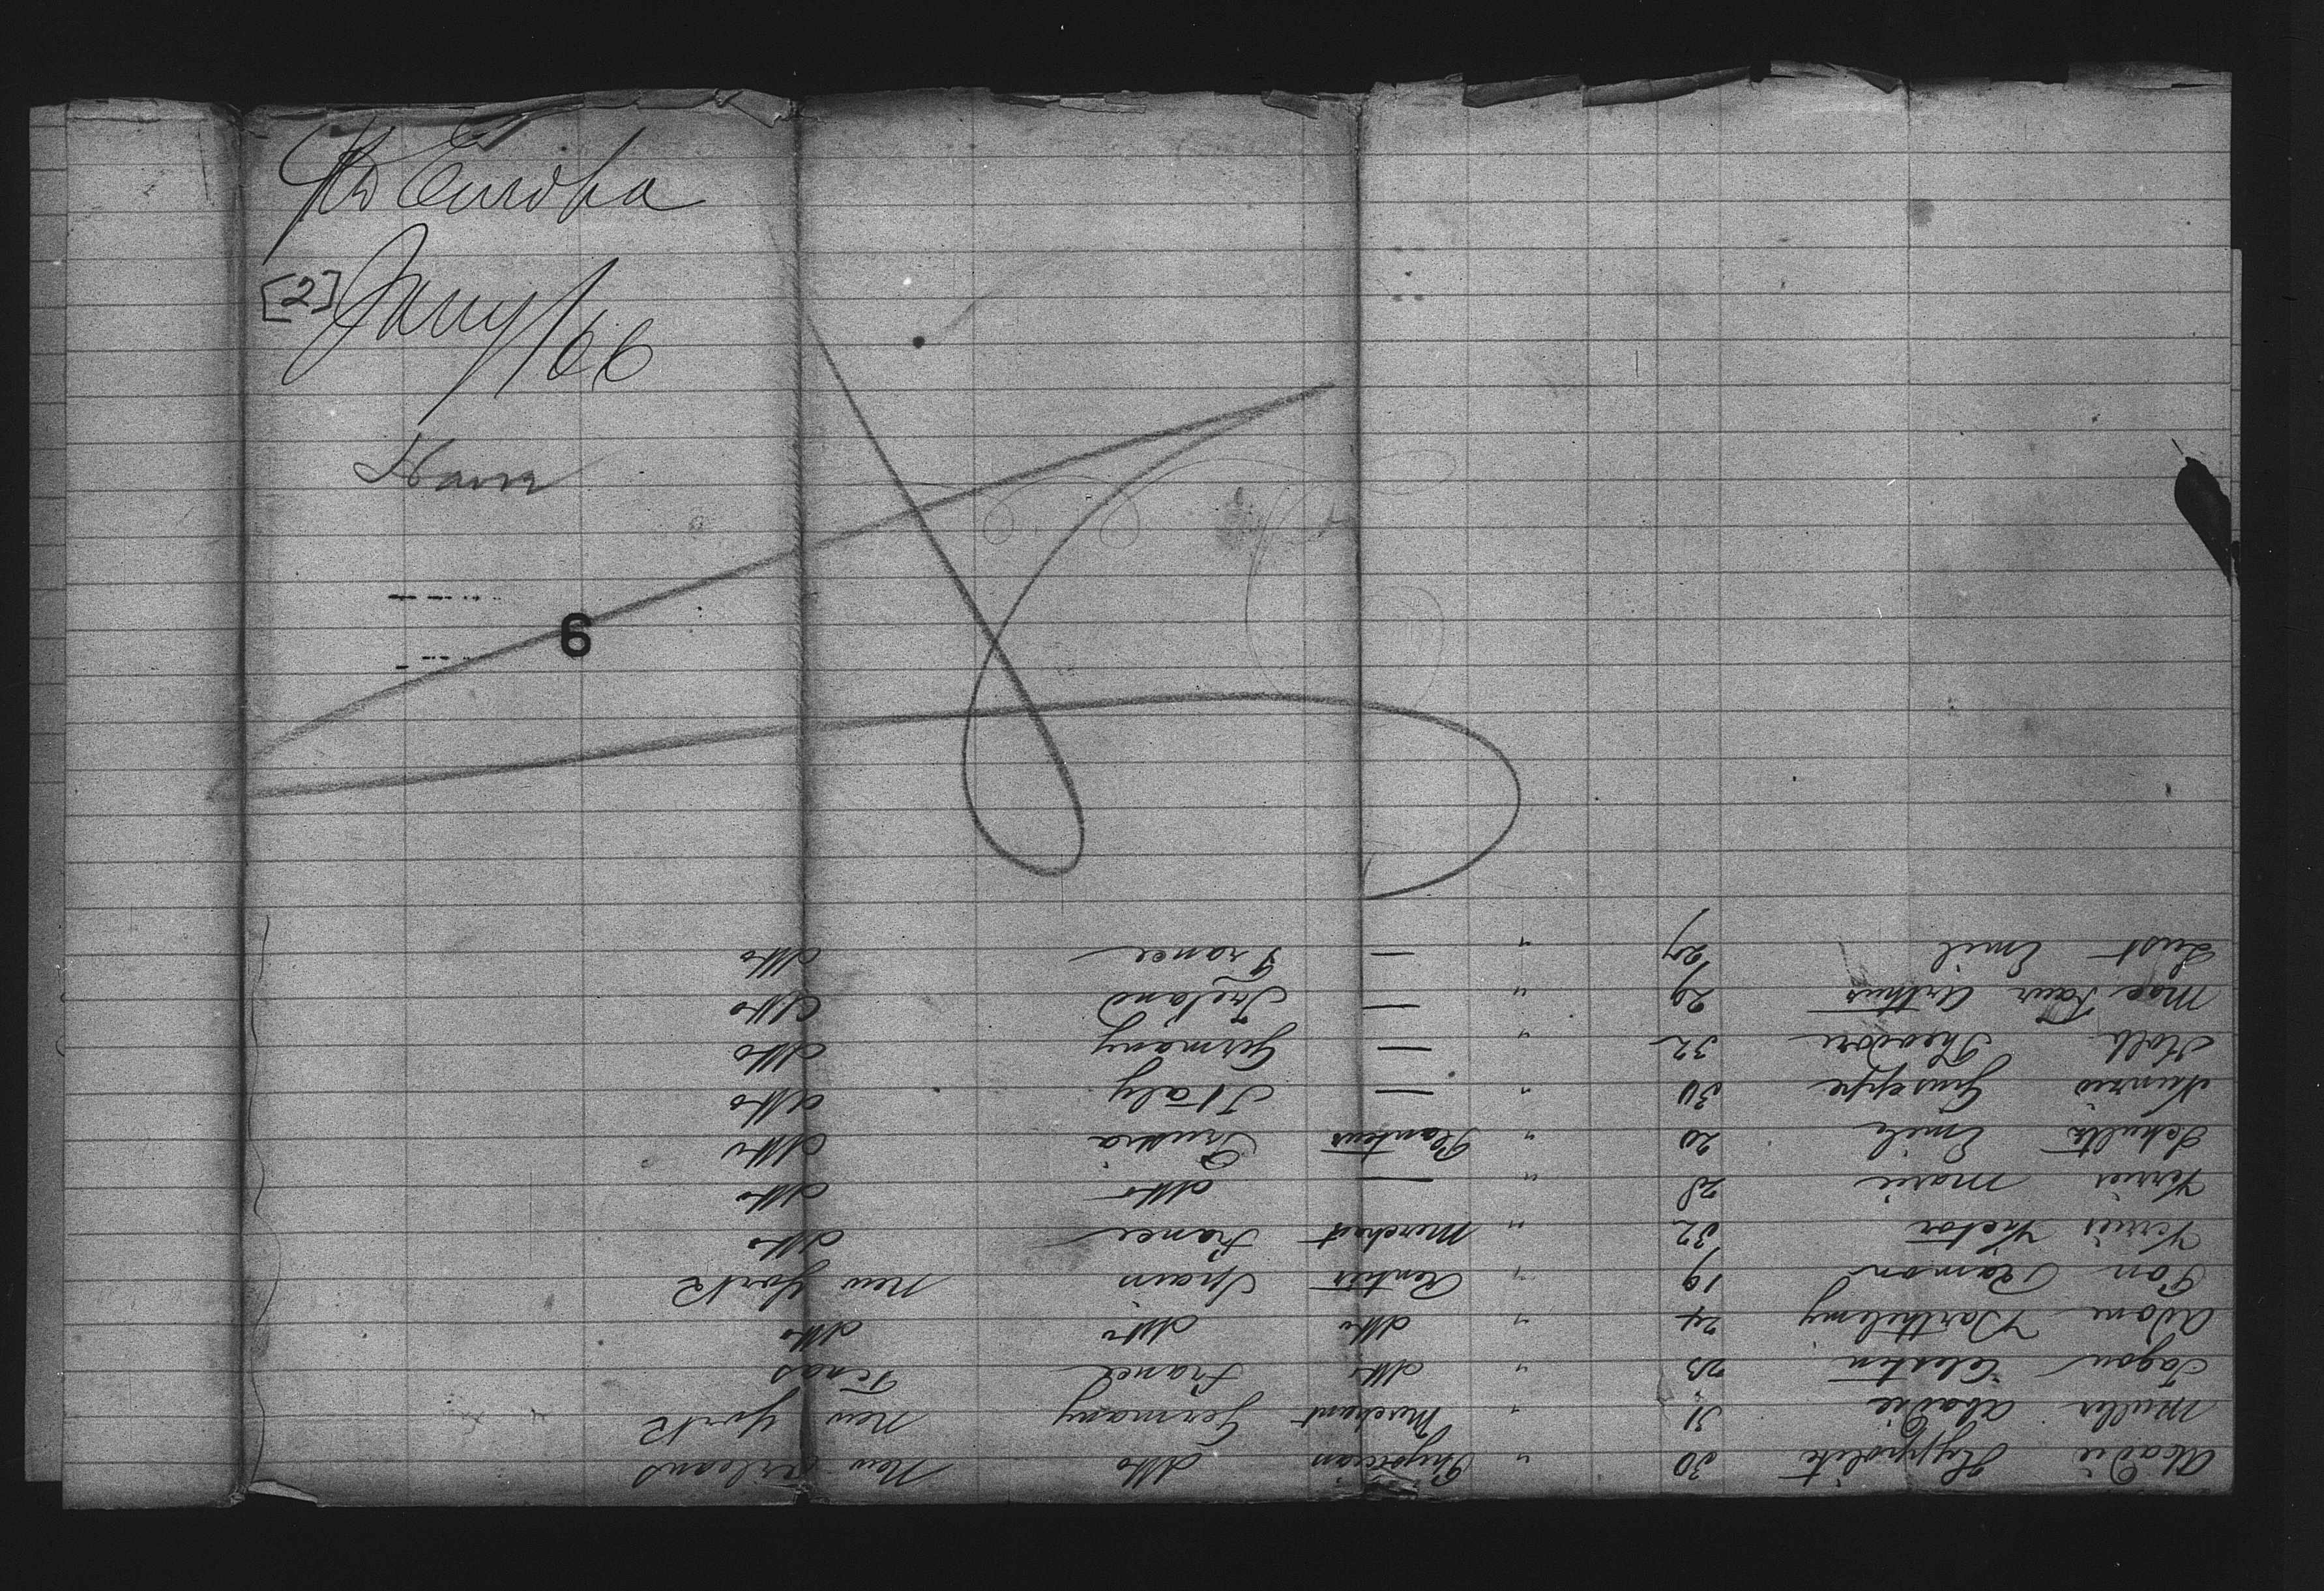 SS Europa
[2] Jany /66
Havre
6
Abadie Hyppolite 30 " Physician ditto New Orleans
Muller Abadie 31 " Merchant Germany New York
Tagou Celestin 23 " ditto France Texas
Adone Barthelmy 24 " ditto ditto ditto
Pon Ramon 19 " Rentier Spain New York
Verrier Victor 32 " Merchant France ditto
Verrier Marie 28 " — ditto ditto
Schultz Emile 20 " Planteur Prussia ditto
Giuseppe 30 " — Italy ditto
Holb Theodore 32 " — Germany ditto
Mac Faur Arthur 29 " — Ireland ditto
Lust Emil 27 " — France ditto